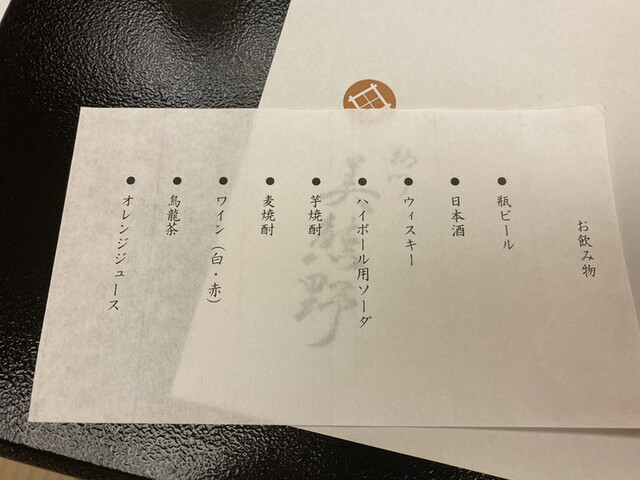 お飲み物
●瓶ビール
●日本酒
●ウィスキー
●ハイボール用ソーダ
●芋焼酎
●麦焼酎
●ワイン（白・赤）
●烏龍茶
●オレンジジュース